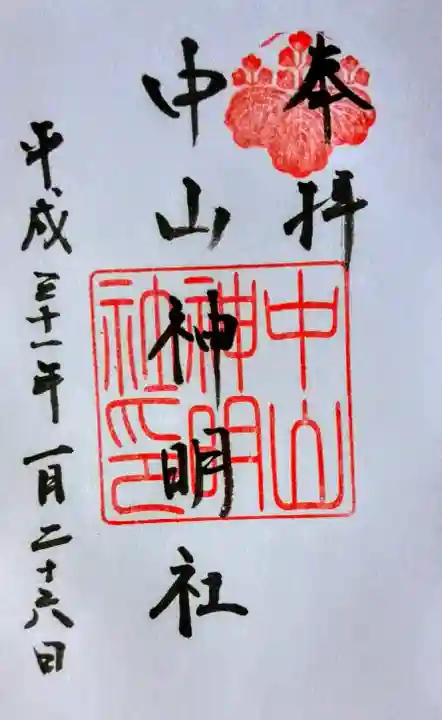 奉拝
中山神明社
中山
神明
社印
平成三十一年一月二十六日